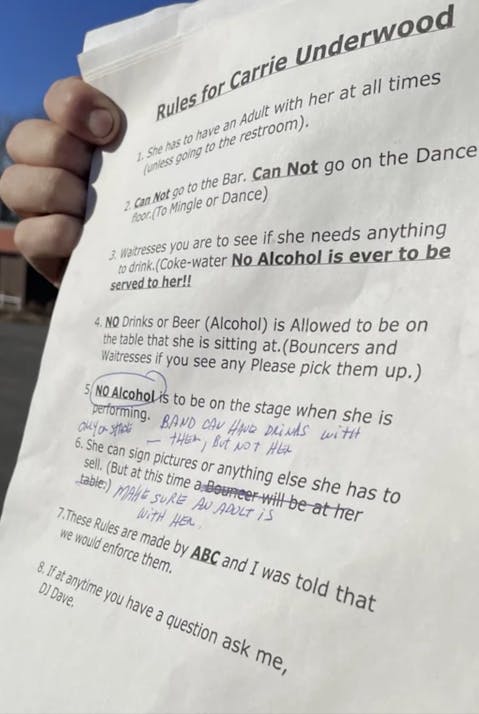 Rules for Carrie Underwood
1. She has to have an Adult with her at all times
(unless going to the restroom).
2. Can Not go to the Bar. Can Not go on the Dance
floor.(To Mingle or Dance)
3. Waitresses you are to see if she needs anything
to drink.(Coke-water No Alcohol is ever to be
served to her!!
4. NO Drinks or Beer (Alcohol) is Allowed to be on
the table that she is sitting at.(Bouncers and
Waitresses if you see any Please pick them up.)
5. NO Alcohol is to be on the stage when she is
performing. BAND CAN HAVE DRINKS WITH
ONLY ON STAGE — THEM, BUT NOT HER
6. She can sign pictures or anything else she has to
sell. (But at this time a Bouncer will be at her
table.) MAKE SURE AN ADULT IS
WITH HER.
7.These Rules are made by ABC and I was told that
we would enforce them.
8. If at anytime you have a question ask me,
DJ Dave.